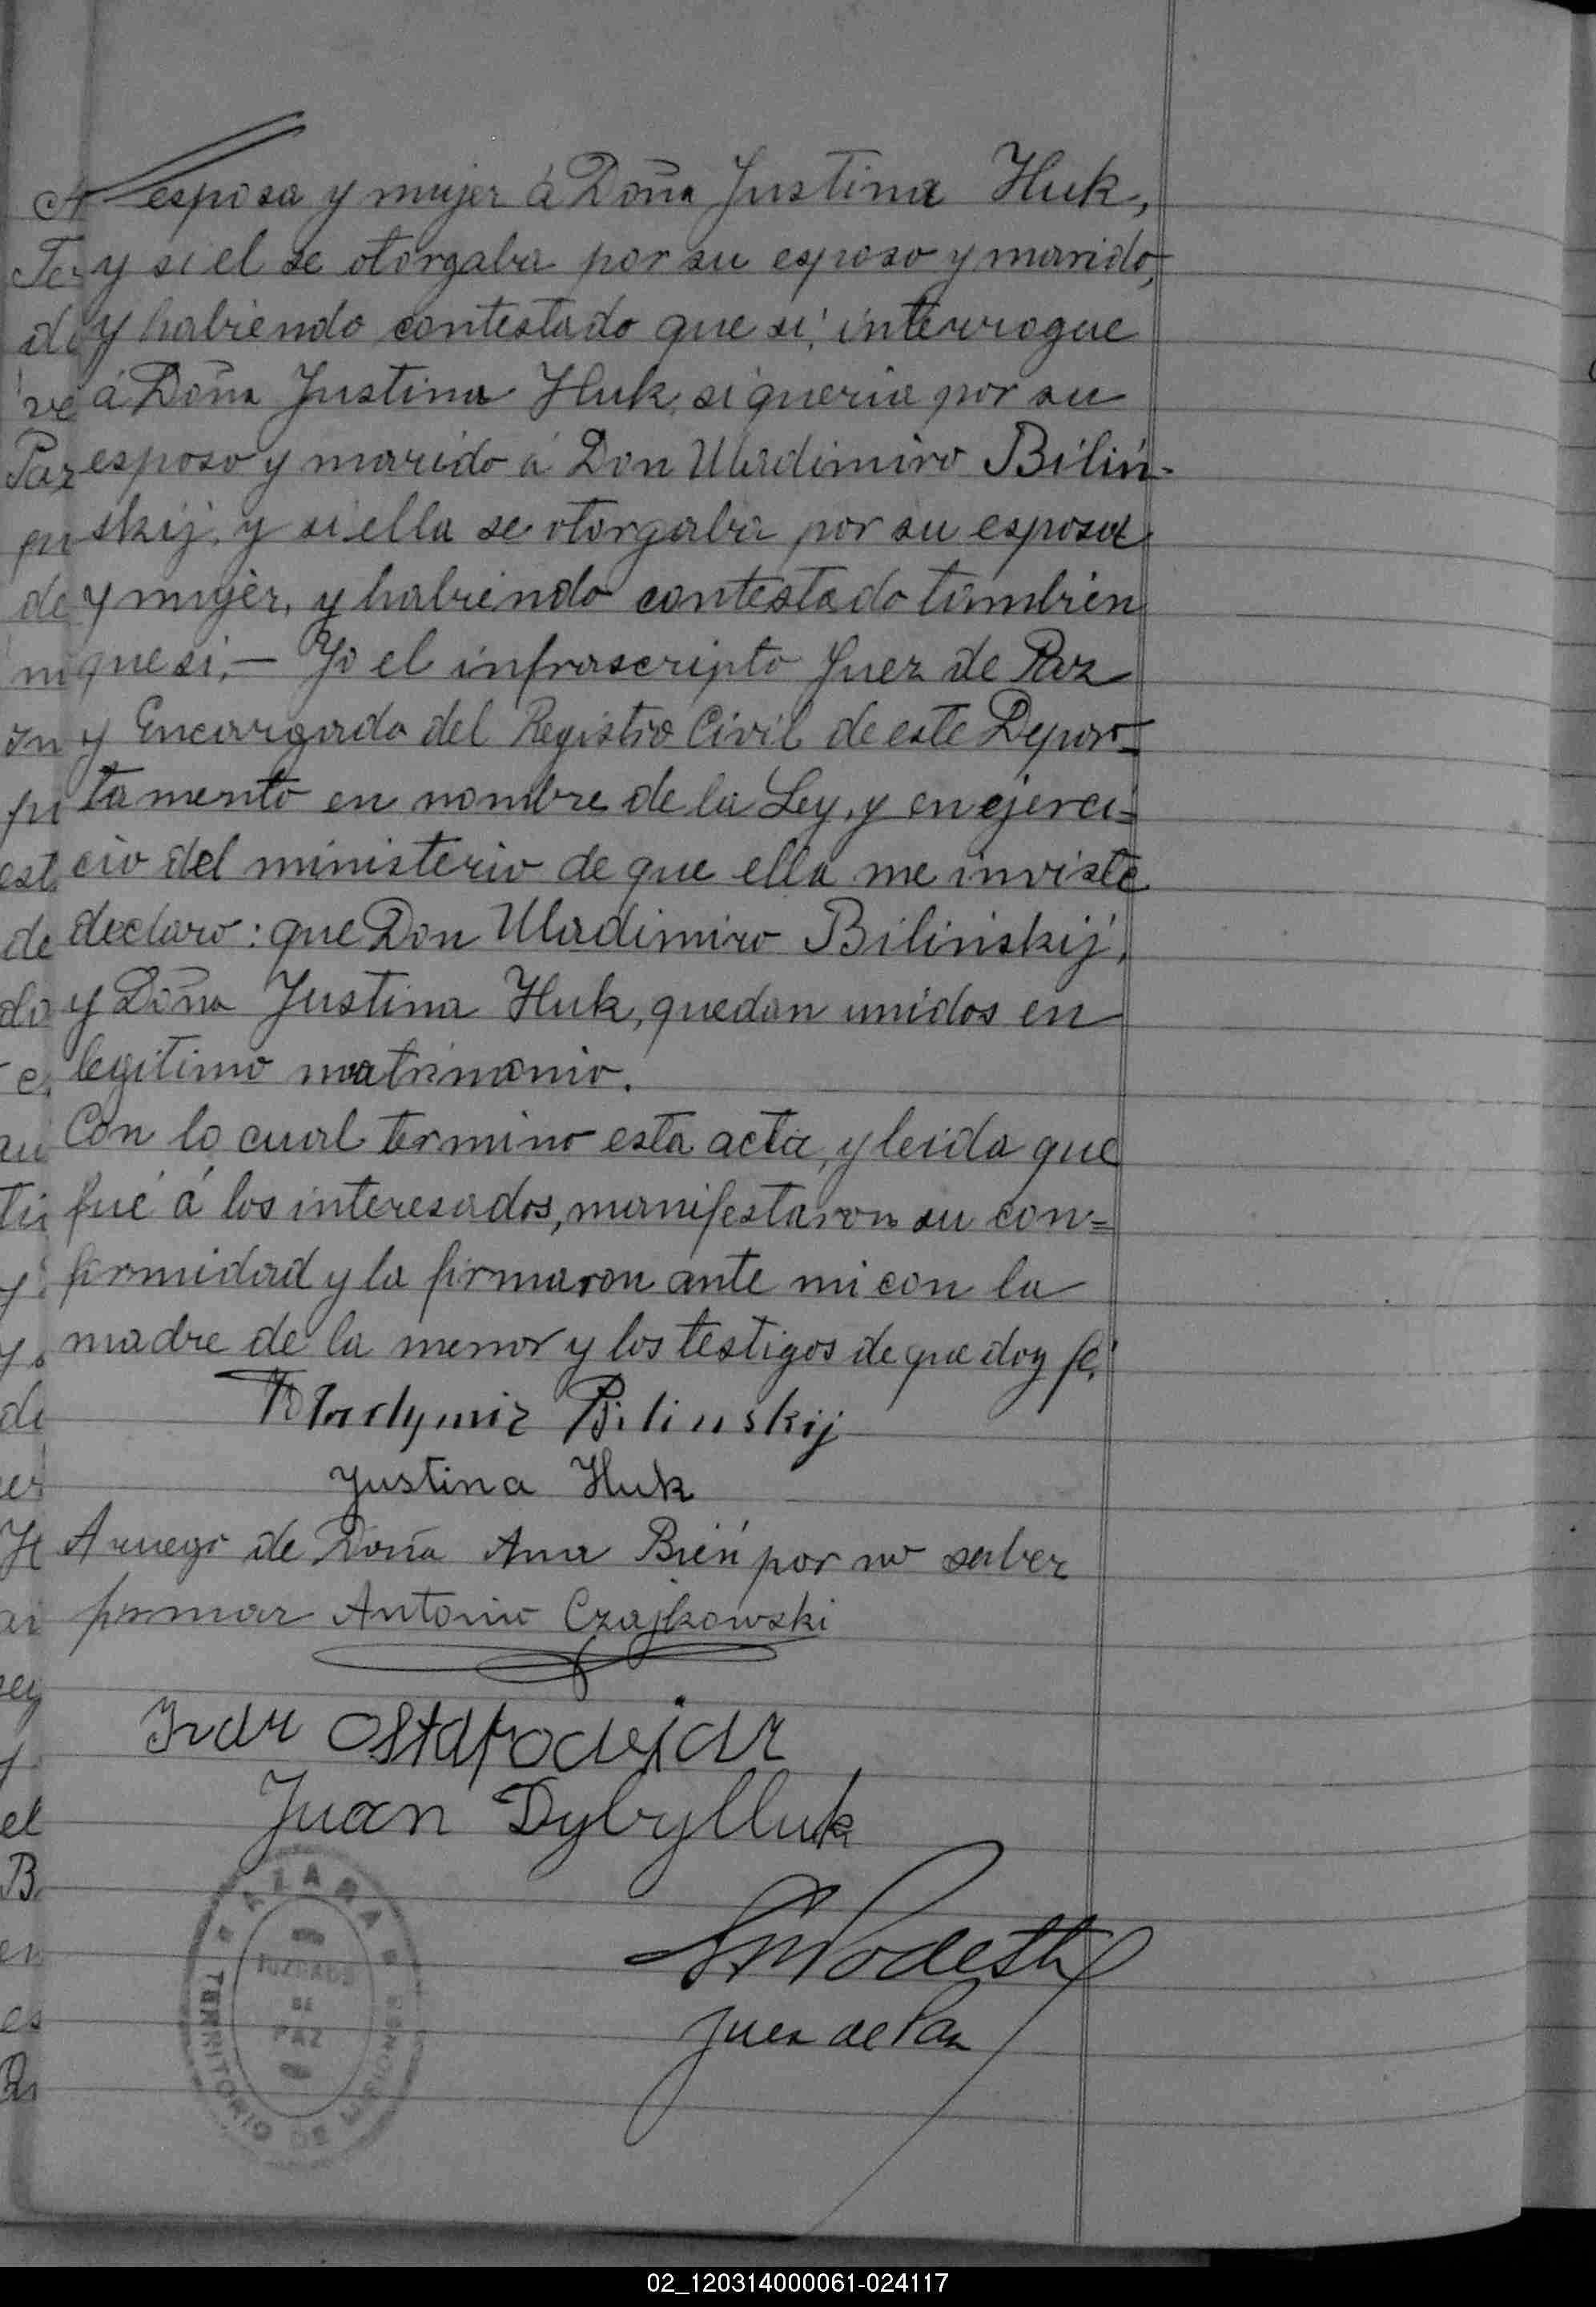 esposa y mujer á Doña Justina Huk,
y si el se otorgaba por su esposo y marido,
y habiendo contestado que sí; interrogue
á Doña Justina Huk, si queria por su
esposo y marido á Don Uladimiro Biliń-
skij, y si ella se otorgaba por su esposa
y mujer, y habiendo contestado tambien
que si. — Yo el infrascripto Juez de Paz
y Encargado del Registro Civil de este Depar=
tamento en nombre de la Ley, y en ejerci=
cio del ministerio de que ella me inviste
declaro: que Don Uladimiro Bilinskij,
y Doña Justina Huk, quedan unidos en
legitimo matrimonio.
Con lo cual termino esta acta, y leida que
fué á los interesados, manifestaron su con=
formidad y la firmaron ante mi con la
madre de la menor y los testigos de que doy fé.
Wladymir Bilinskij
Justina Huk
A ruego de Doña Ana Bień por no saber
firmar Antonio Czajkowski
Juan Dybylluk
Podestá
Juez de Paz
AZARA
JUZGADO
DE
PAZ
TERRITORIO DE MISIONES
02_120314000061-024117